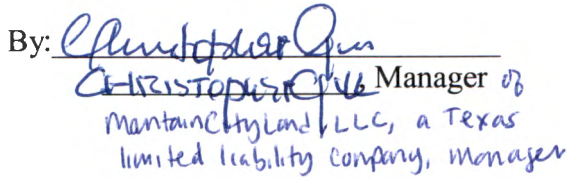 By: Christopher
CHRISTOPHER Manager of
MountainCityLand, LLC, a Texas
limited liability company, manager